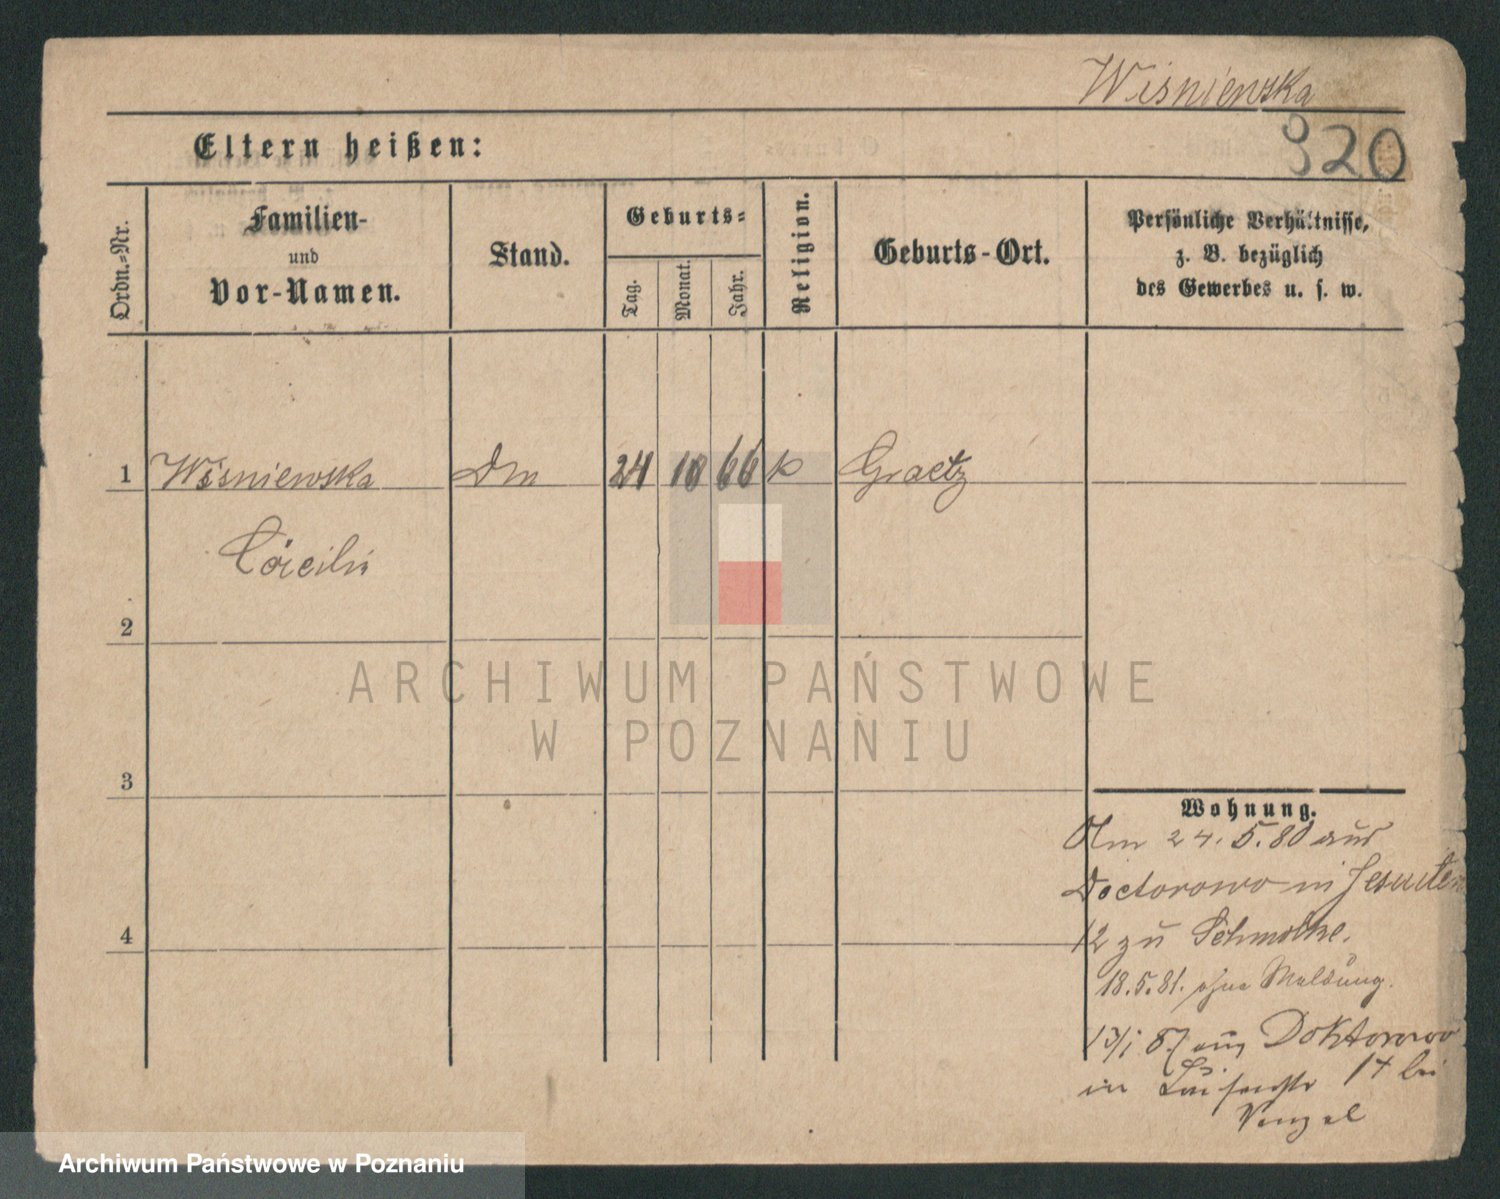 Wisniewska
Eltern heißen:
320
Ordn.=Nr.
Familien-
und
Vor-Namen.
Stand.
Geburts=
Tag.
Monat.
Jahr.
Religion.
Geburts-Ort.
Persönliche Verhältnisse,
z. B. bezüglich
des Gewerbes u. s. w.
1 Wisniewska Dm 24 10 66 k Graetz
Cäcilie
2
3
4
Wohnung.
Am 24. 5. 80 aus
Doctorowo in Jesuiten
12 zu Schmolke.
18. 5. 81. ohne Meldung.
13/1 87 aus Doktorowo
in Luisenstr 14 bei
Venzel
ARCHIWUM PAŃSTWOWE
W POZNANIU
Archiwum Państwowe w Poznaniu